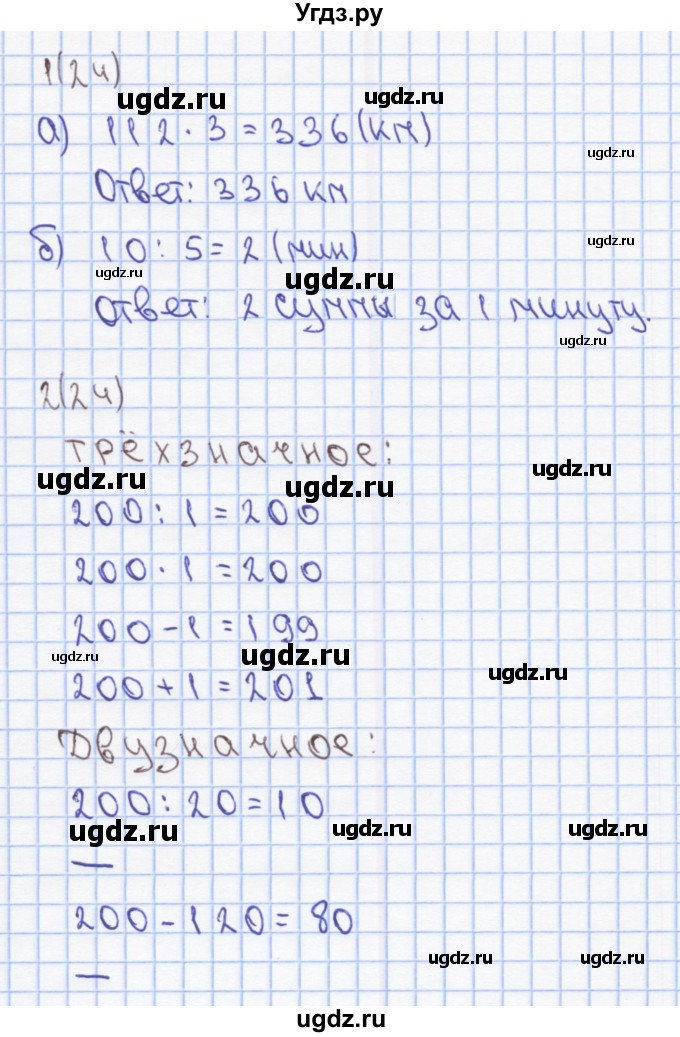 Угдз.ру
1(24)
ugdz.ru ugdz.ru
а) 112 · 3 = 336 (км)
ugdz.ru
Ответ: 336 км
б) 10 : 5 = 2 (мин)
ugdz.ru ugdz.ru ugdz.ru
Ответ: 2 суммы за 1 минуту.
ugdz.ru
2(24)
трёхзначное:
ugdz.ru ugdz.ru ugdz.ru
200 : 1 = 200
200 · 1 = 200
200 - 1 = 199
ugdz.ru ugdz.ru ugdz.ru
200 + 1 = 201
Двузначное:
200 : 20 = 10
ugdz.ru ugdz.ru ugdz.ru
—
200 - 120 = 80
ugdz.ru ugdz.ru
—
ugdz.ru